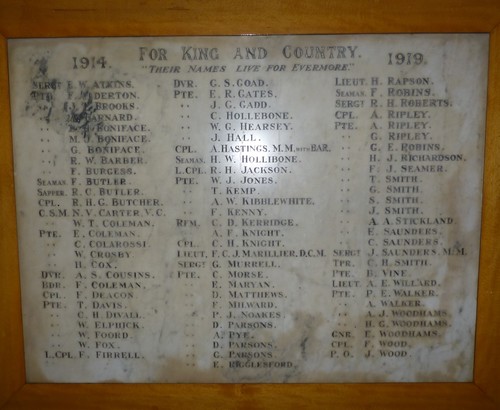 FOR KING AND COUNTRY.
1914. 1919.
"THEIR NAMES LIVE FOR EVERMORE"
SERGT E. W. ATKINS.
PTE. F. ALDERTON.
" BROOKS.
" BARNARD
" BONIFACE.
" M. J. BONIFACE.
" G. BONIFACE.
" R. W. BARBER.
" F. BURGESS.
SEAMAN. F. BUTLER.
SAPPER. R. C. BUTLER.
CPL. R. H. G. BUTCHER.
C.S.M. N. V. CARTER, V.C.
" W. T. COLEMAN.
PTE. E. COLEMAN.
" C. COLAROSSI
" W. CROSBY.
" H. COX.
DVR. A. S. COUSINS.
BDR. F. COLEMAN.
CPL. F. DEACON
PTE. T. DAVIS.
" C. H. DIVALL.
" W. ELPHICK.
" W. FOORD.
" W. FOX.
L.CPL. F. FIRRELL.
DVR. G. S. GOAD.
PTE. E. R. GATES.
" J. G. GADD.
" C. HOLLEBONE.
" W. G. HEARSEY.
" J. HALL.
CPL. A. HASTINGS. M.M. WITH BAR.
SEAMAN. H. W. HOLLIBONE.
L.CPL. R. H. JACKSON.
PTE. W. J. JONES.
" T. KEMP.
" A. W. KIBBLEWHITE.
" F. KENNY.
RFM. C. D. KERRIDGE.
" A. F. KNIGHT.
CPL. C. H. KNIGHT.
LIEUT. F. C. J. MARILLIER, D.C.M.
SERGT G. MURRELL.
PTE. C. MORSE.
" E. MARYAN.
" D. MATTHEWS.
" F. MILWARD.
" P. J. NOAKES
" D. PARSONS.
" A. PYE.
" D. PARSONS.
" G. PARSONS.
" E. RIGGLESFORD.
LIEUT. H. RAPSON.
SEAMAN. F. ROBINS.
SERGT R. H. ROBERTS.
CPL. A. RIPLEY.
PTE. A. RIPLEY.
" G. RIPLEY.
" G. E. ROBINS.
" H. J. RICHARDSON.
" F. J. SEAMER.
" T. SMITH.
" G. SMITH.
" S. SMITH.
" J. SMITH.
" A. A. STICKLAND.
" E. SAUNDERS.
" C. SAUNDERS.
SERGT J. SAUNDERS, M.M.
TPR. C. H. SMITH.
PTE. B. VINE.
LIEUT. A. E. WILLARD.
PTE. P. E. WALKER.
" A. WALKER.
" A. J. WOODHAMS.
" H. G. WOODHAMS.
GNR. E. WOODHAMS.
CPL. F. WOOD.
P.O. J. WOOD.